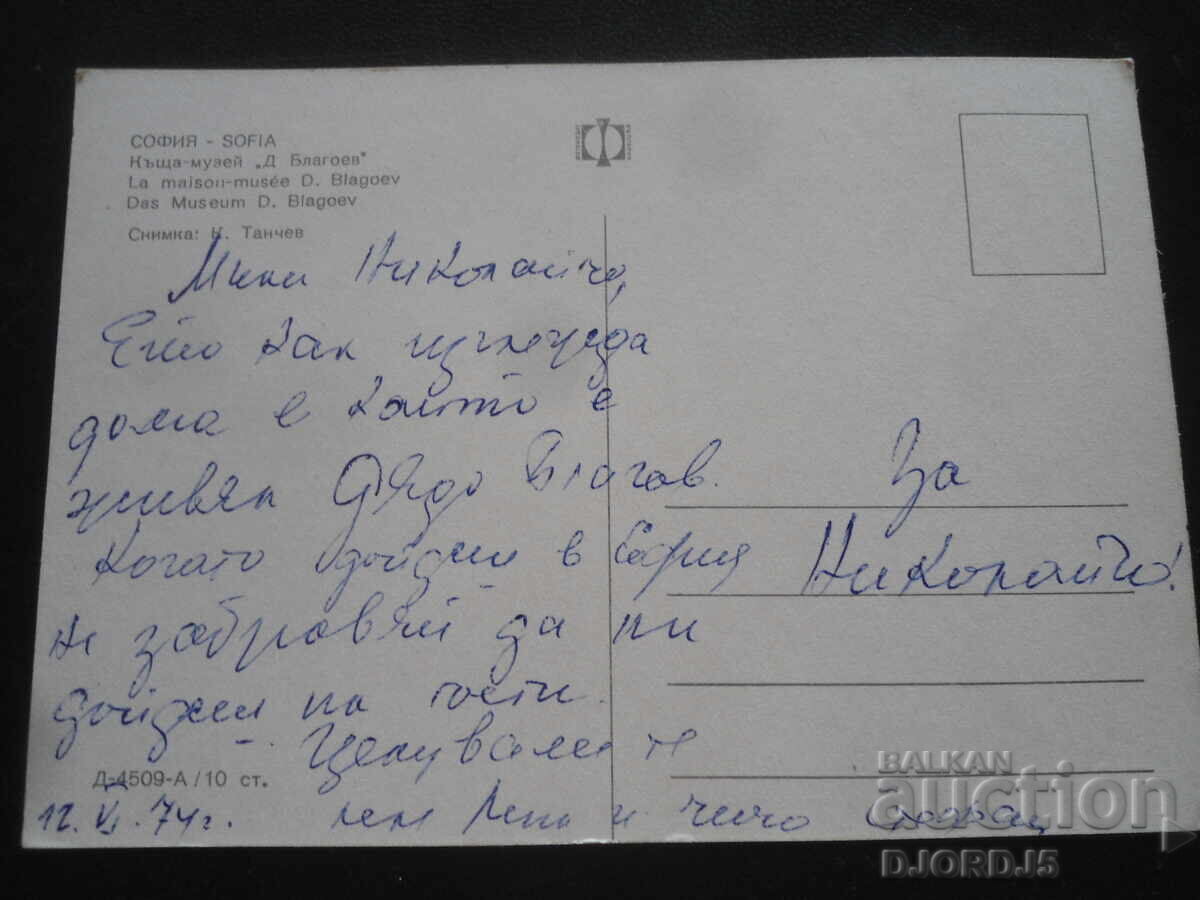 СОФИЯ - SOFIA
Къща-музей „Д Благоев"
La maison-musée D. Blagoev
Das Museum D. Blagoev
Снимка: К. Танчев
Мили Николайчо,
Ето как изглежда
дома в който е
живял Дядо Благоев.
Когато дойдеш в София
не забравяй да ни
дойдеш на гости.
Целуваме те
12. VI. 74г. леля и чичо
За
Николайчо!
Д-4509-А/10 ст.
BALKAN
auction
DJORDJ5